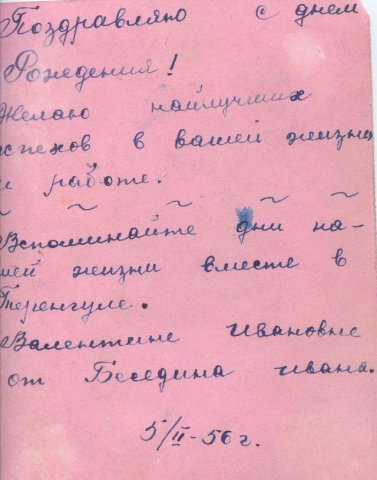 Поздравляю с днем
Рождения!
Желаю наилучших
успехов в вашей жизни
и работе.
~ ~ ~ ~ ~
Вспоминайте дни на-
шей жизни вместе в
Теренгуле.
Валентине Ивановне
от Беседина Ивана.
5/II-56 г.